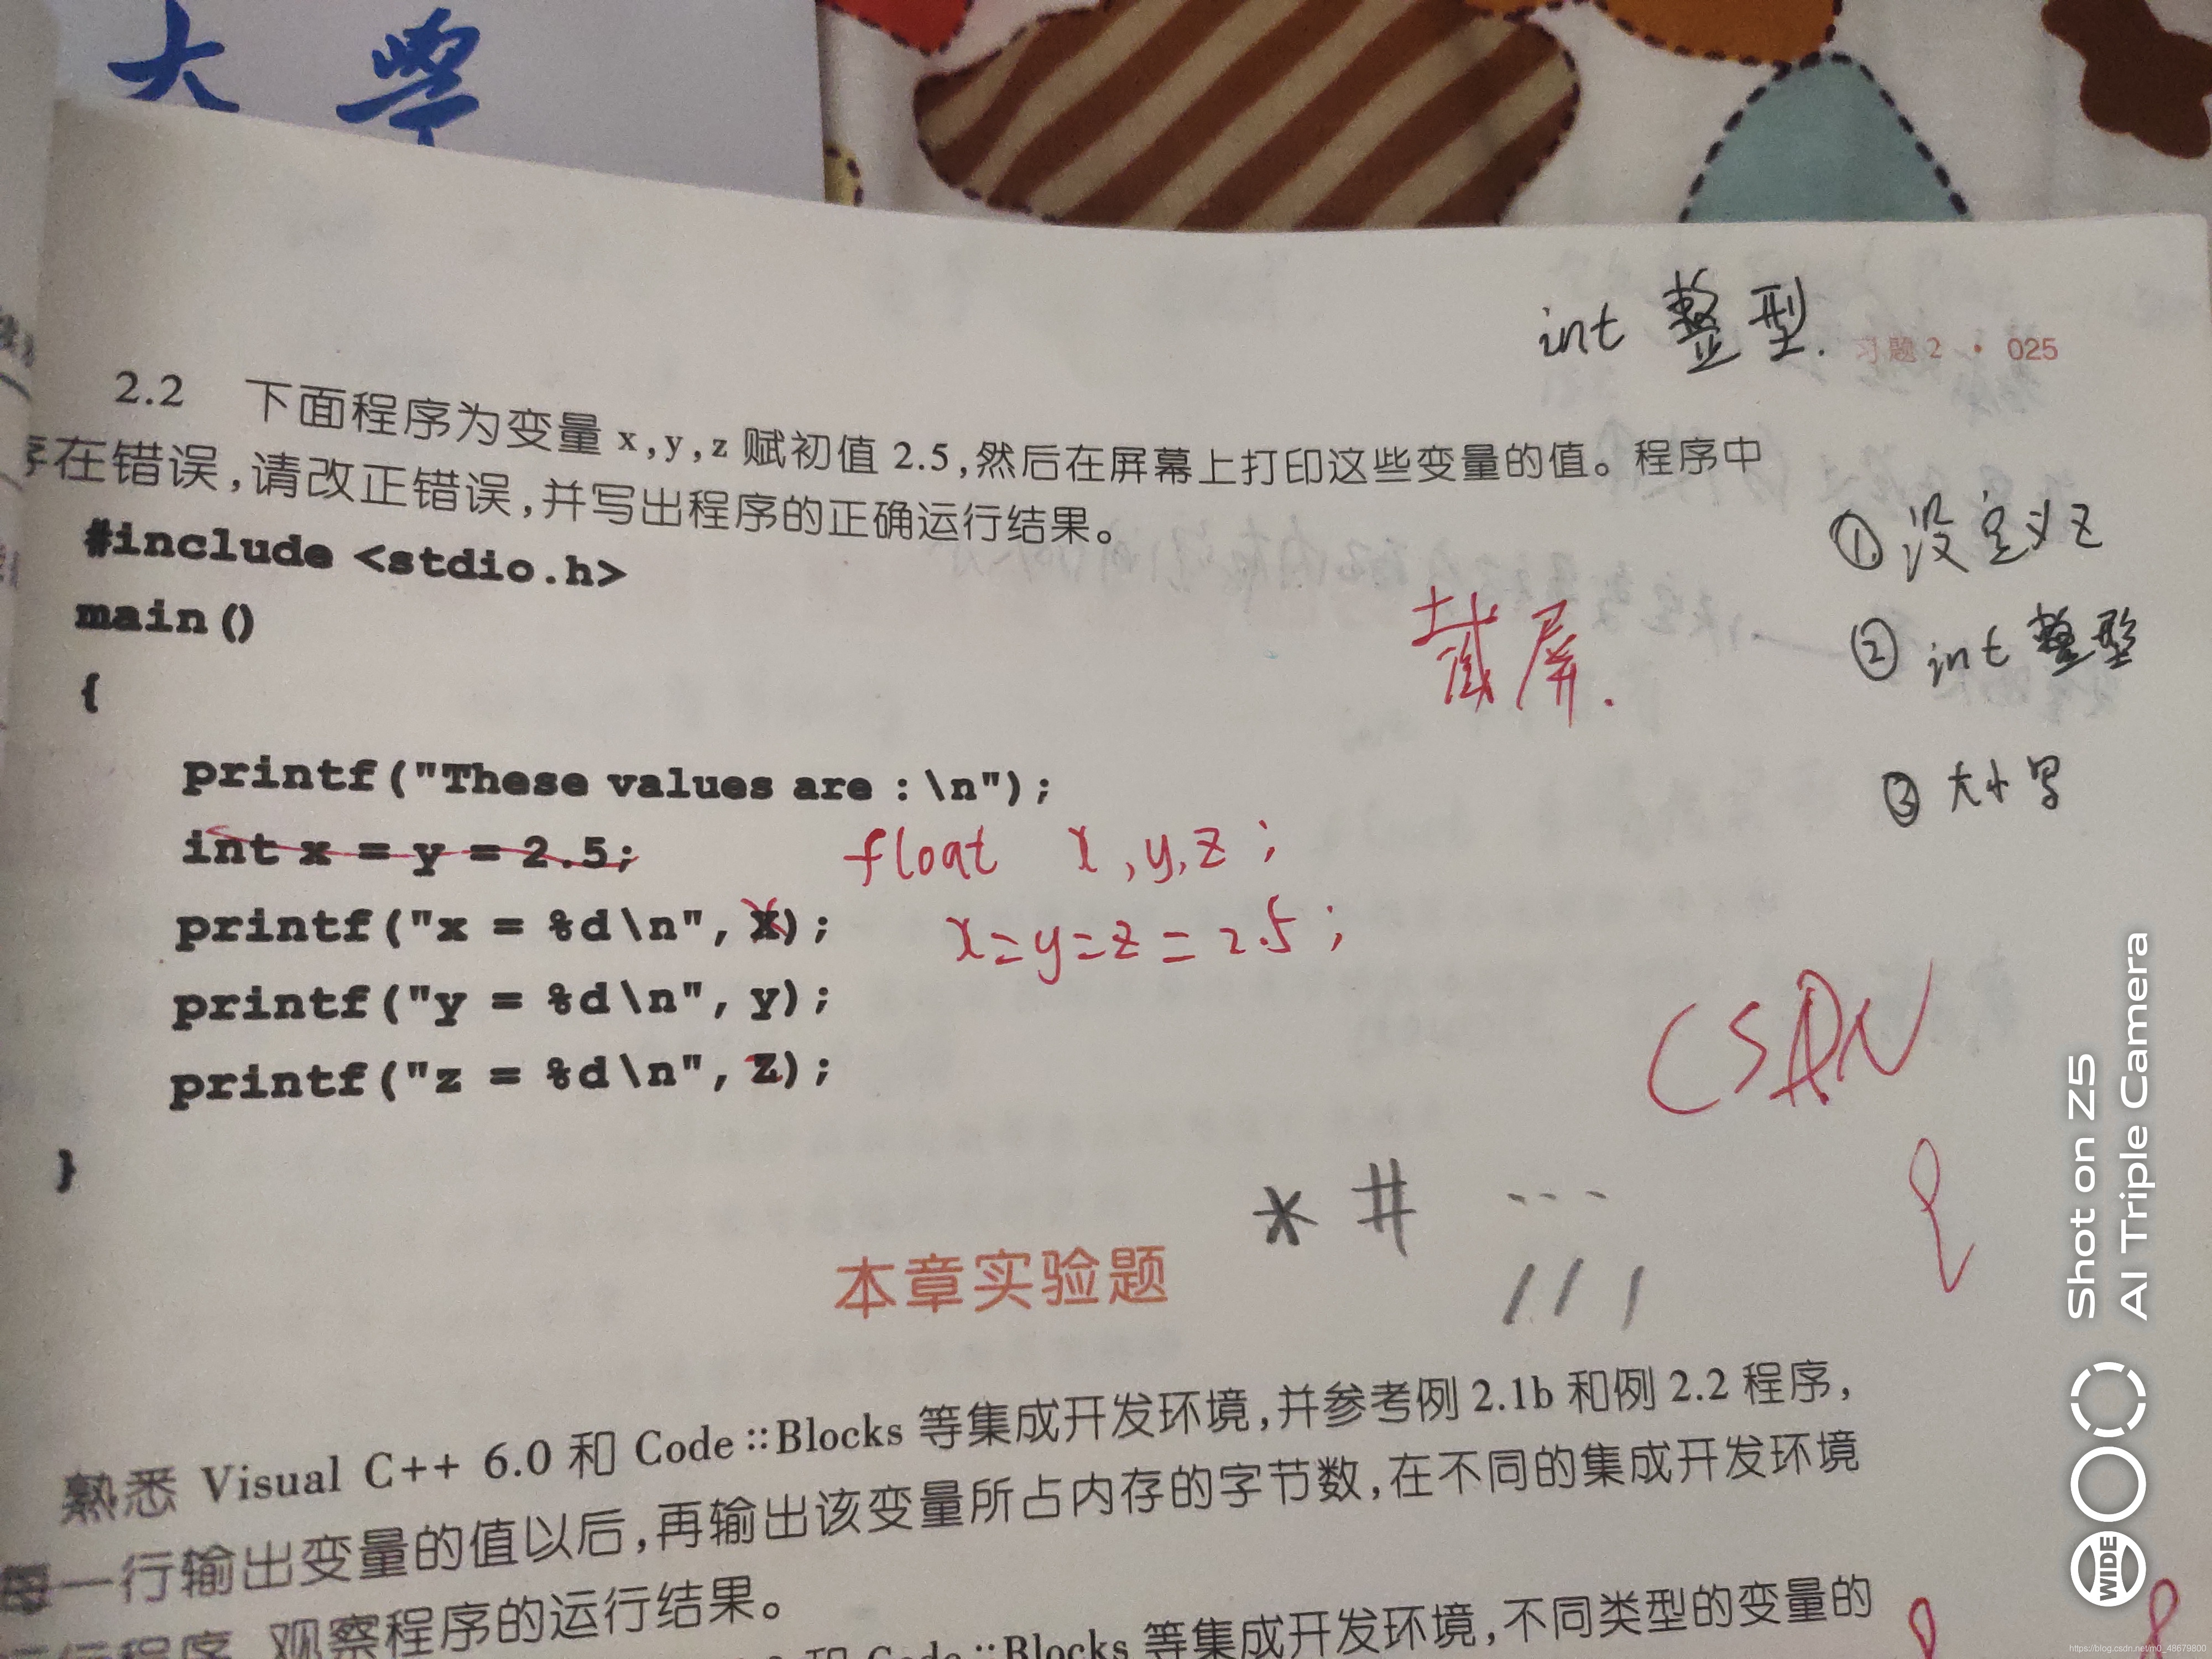 大 學
int 整型.
习题2 · 025
2.2 下面程序为变量 x,y,z 赋初值 2.5,然后在屏幕上打印这些变量的值。程序中
存在错误,请改正错误,并写出程序的正确运行结果。
① 没定义z
#include <stdio.h>
截屏.
main()
② int 整型
{
printf("These values are :\n");
③ 大小写
int x = y = 2.5;
float x,y,z;
printf("x = %d\n", X);
x=y=z=2.5;
printf("y = %d\n", y);
CSDN
printf("z = %d\n", Z);
}
* # ---
本章实验题
熟悉 Visual C++ 6.0 和 Code::Blocks 等集成开发环境,并参考例 2.1b 和例 2.2 程序,
每一行输出变量的值以后,再输出该变量所占内存的字节数,在不同的集成开发环境
运行程序,观察程序的运行结果。
和 Code::Blocks 等集成开发环境,不同类型的变量的
Shot on Z5
AI Triple Camera
WIDE
https://blog.csdn.net/m0_48679800